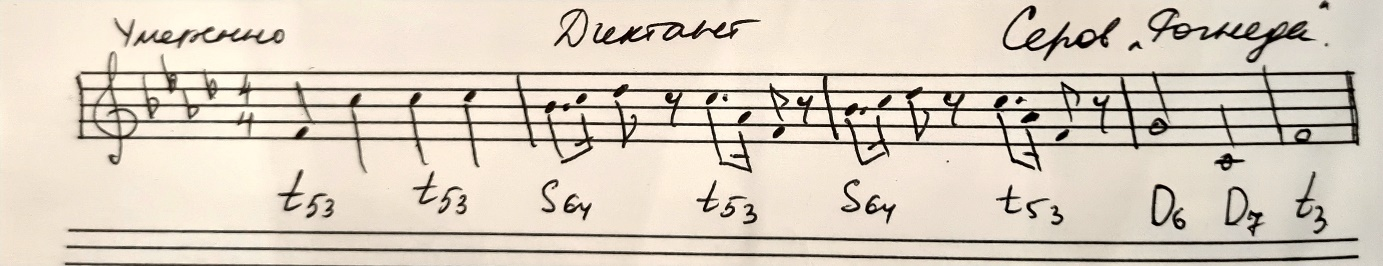 Умеренно Диктант Серов „Рогнеда".
4
4
t53 t53 S64 t53 S64 t53 D6 D7 t3